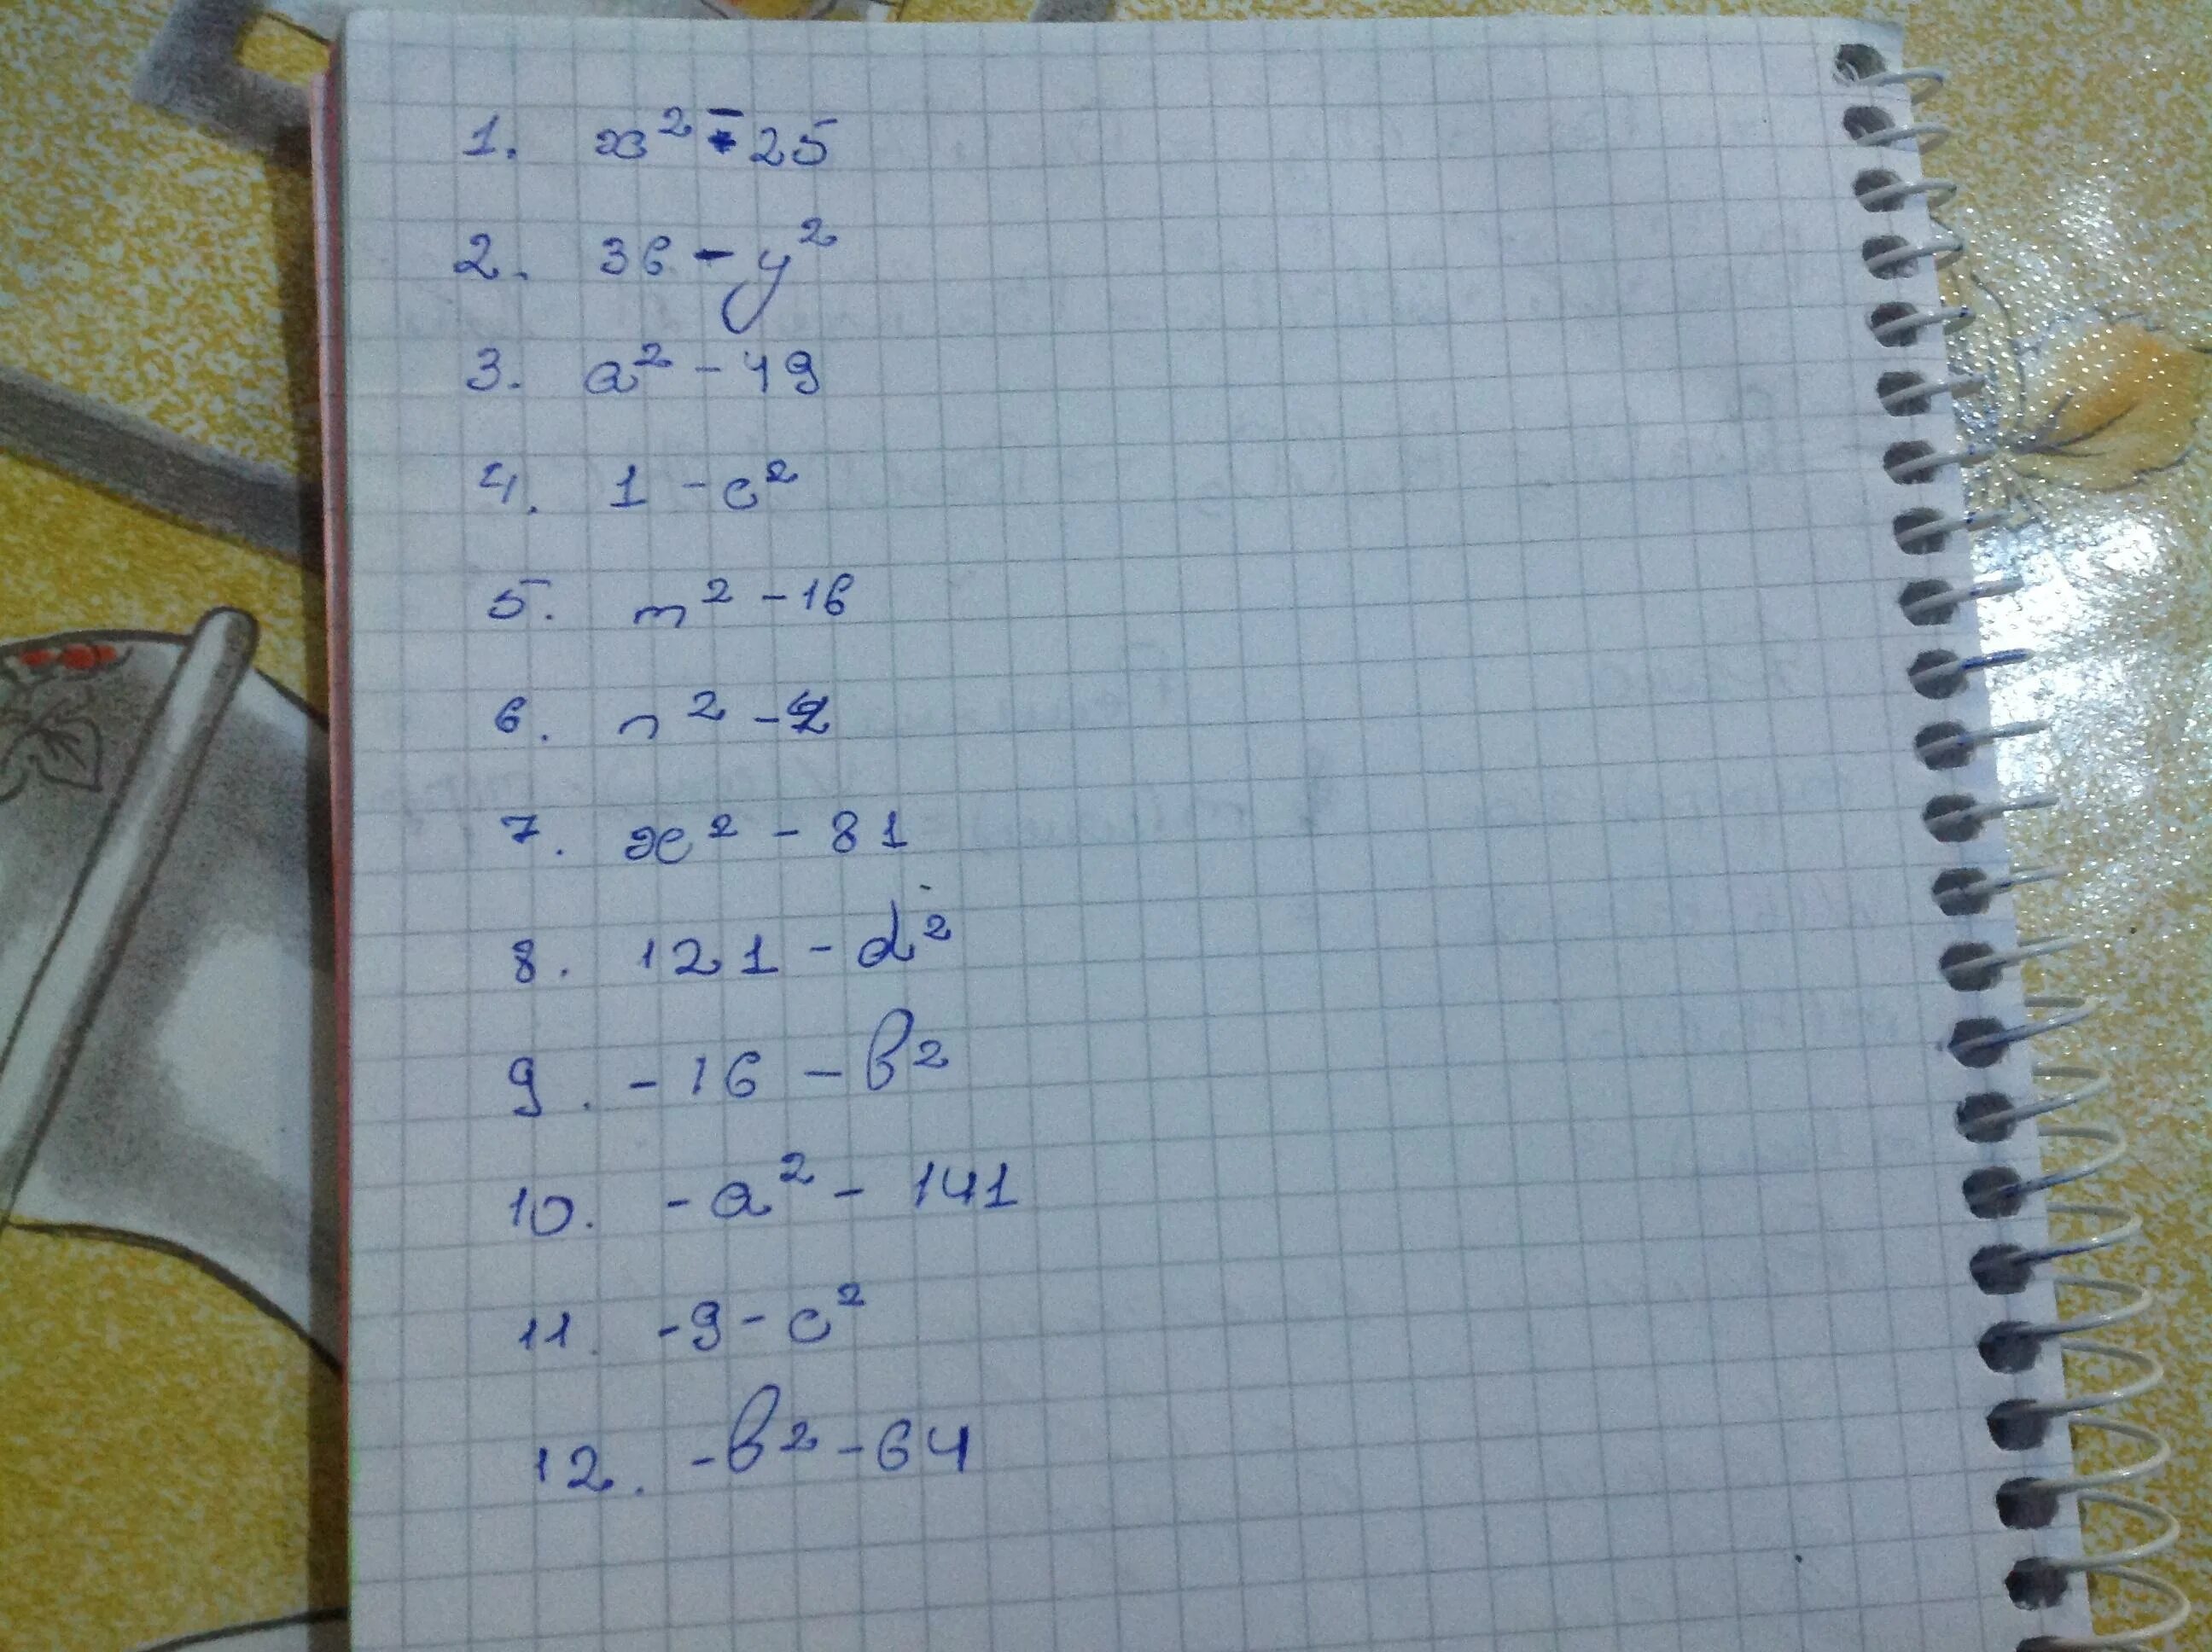 1. x² - 25
2. 36 - y²
3. a² - 49
4. 1 - c²
5. m² - 16
6. n² -
7. x² - 81
8. 121 - d²
9. - 16 - b²
10. - a² - 141
11. - 9 - c²
12. - b² - 64